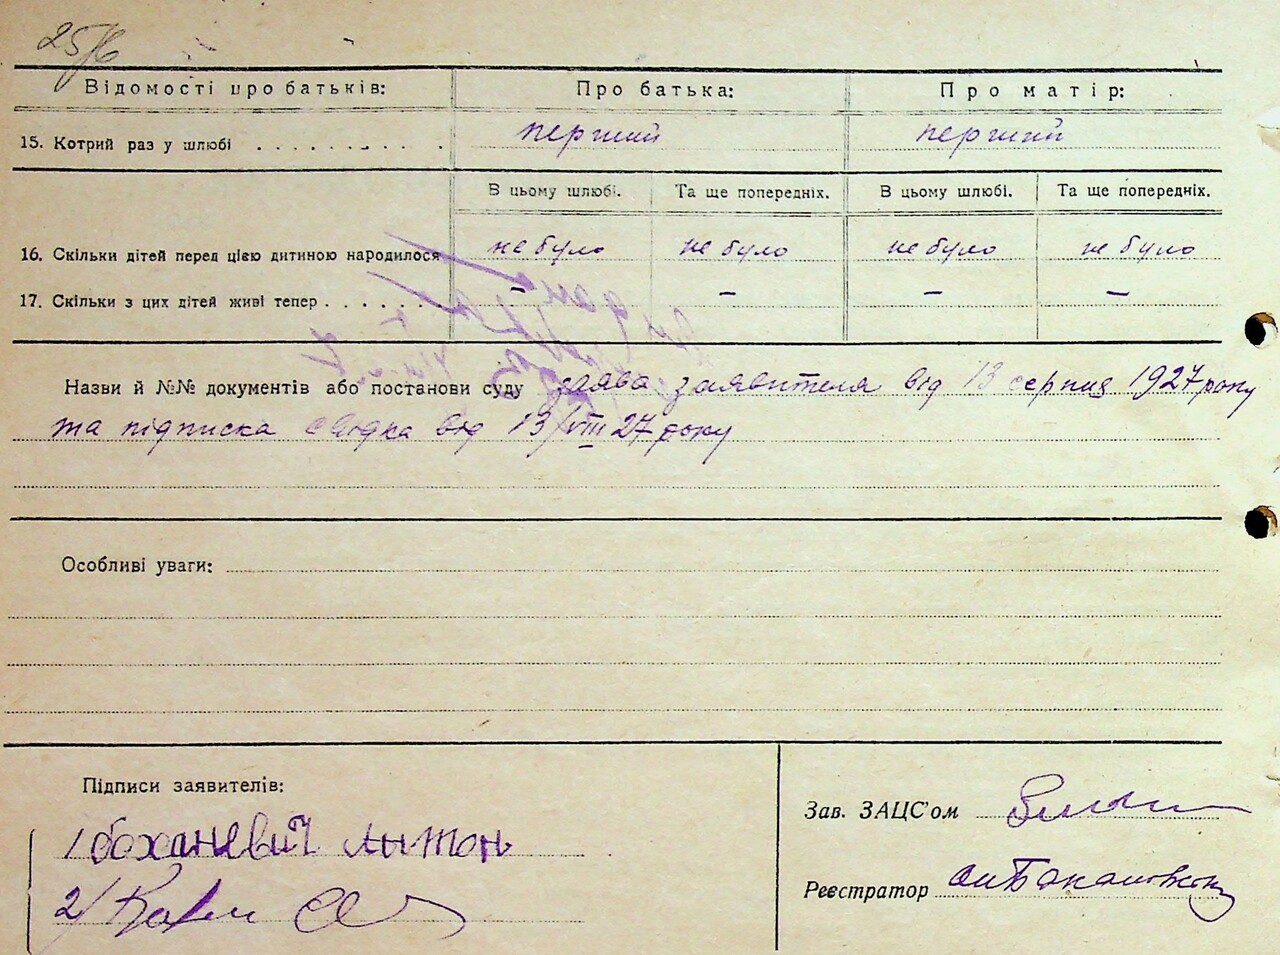 25
Відомості про батьків: Про батька: Про матір:
15. Котрий раз у шлюбі . . . . . . . . . . перший перший
В цьому шлюбі. Та ще попередніх. В цьому шлюбі. Та ще попередніх.
16. Скільки дітей перед цією дитиною народилося не було не було не було не було
17. Скільки з цих дітей живі тепер . . . . . . – – – –
Назви й №№ документів або постанови суду заява заявителя від 13 серпня 1927 року
та підписка свідка від 13/VIII 27 року
Особливі уваги:
Підписи заявителів:
1 боханевич антон
2/
Зав. ЗАЦС'ом
Реєстратор